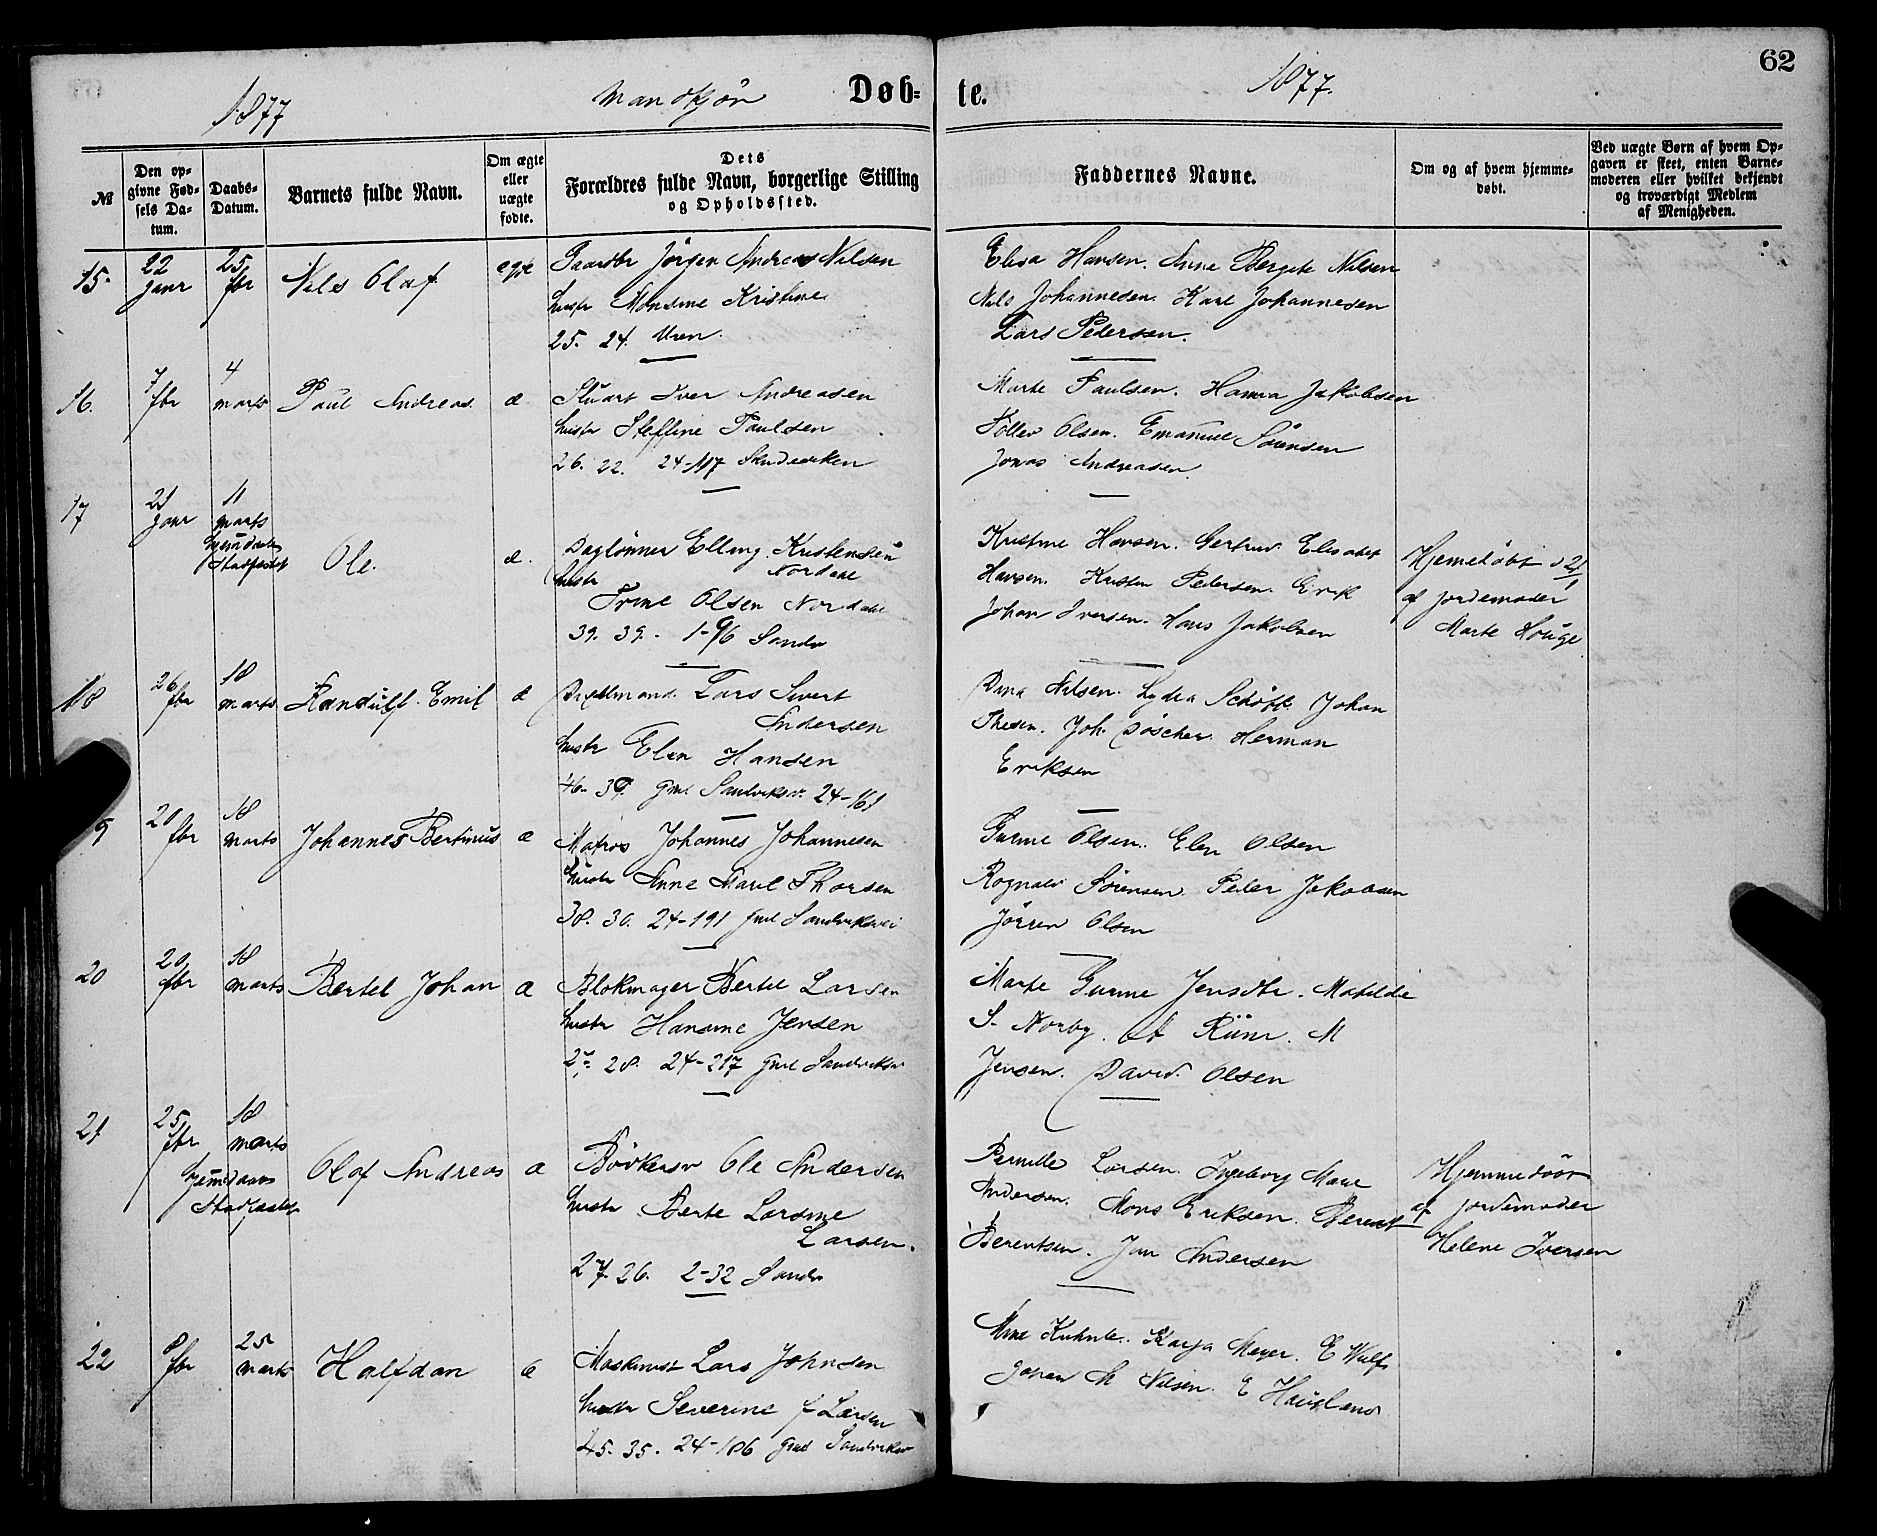 62
1877 Mandkjøn Døb- te. 1877.
№
Den op-
givne Fød-
sels Da-
tum.
Daabs-
Datum.
Barnets fulde Navn.
Om ægte
eller
uægte
fødte.
Dets
Forældres fulde Navn, borgerlige Stilling
og Opholdssted.
Faddernes Navne.
Om og af hvem hjemme-
døbt.
Ved uægte Børn af hvem Op-
gaven er skeet, enten Barne-
moderen eller hvilket bekjendt
og troværdigt Medlem
af Menigheden.
15. 22 Janr 25 fbr Nils Olaf
Jörgen Andreas Nilsen
hustr Monsine Kristine
25. 24. Uren.
Elisa Hansen. Anne Bergite Nilsen
Nils Johannesen. Karl Johannesen
Lars Pedersen.
16. 7 fbr 4 marts Paul Andreas. æ
Stuart Iver Andreasen
hustr Steffine Paulsen
26. 22. 24-117
Marte Paulsen. Hanna Jakobsen
Olsen. Emanuel Sörensen
Jonas Andreasen
17 21 Janr 11 marts
Stadfæstet
Ole. æ.
Daglönner Elling Kristensen
Nordahl
hustr
Trine Olsen Nordahl
39. 39. 1-96 Sandv
Kristine Hansen. Gertrud Elisabet
Hansen. Kristen Pedersen. Erik
Johan Iversen. Hans Jakobsen
Hjemedöbt d 21/1
af jordemoder
Marte Houge
18 26 fbr 18 marts Randulf Emil æ
Lars Sivert
Andersen
hustr Elen Hansen
46. 39. gml Sandviksv. 24-161
Dina Nilsen. Lydia Johan
Thesen. Joh. Döscher. Herman
Eriksen
fbr 18 marts Johannes Bertinius æ
Matros Johannes Johannesen
hustr Anne Marie Thorsen
38. 30. 24-191 gml Sandviksvei
Gurine Olsen. Elen Olsen
Rognald Sörensen. Peder Jakobsen
Jörren Olsen
20 20 fbr 18 marts Bertel Johan æ
Blokmager Bertel Larsen
hustr Hansine Jensen
28. 24-217 gml Sandviksv
Marte Gurine Jensdtr. Matilde
S. Norby. M
Jensen. David Olsen
21 25 fbr 18 marts
hjemdaabs
Stadfæstet
Olaf Andreas æ
Bödkersv Ole Andersen
hustr Berte Larsine
Larsen.
27. 26. 2-32 Sandv
Pernille Larsen. Ingeborg Marie
Andersen. Mons Eriksen. Berent
Berentsen. Jan Andersen
Hjemmedöbt
af jordemoder
Helene Iversen
22 8 fbr 25 marts Halfdan æ
Maskinist Lars Johnsen
hustr Severine f Larsen
45. 35. 24-106 gml Sandviksv
Mina Kuhnle. Kaja Meyer. E Wulf
Johan M Nilsen. E Haugland